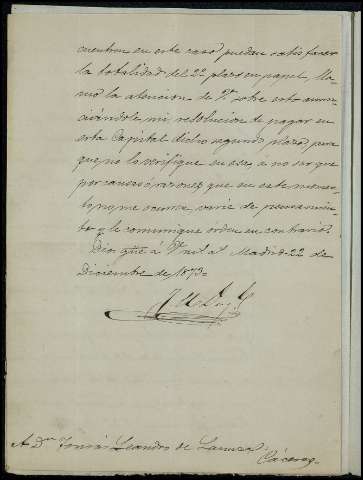 cuentran en este caso puedan satisfacer
la totalidad del 2º plazo en papel. Lla-
mo la atencion de V. sobre esto anun-
ciándole mi resolucion de pagar en
esta Capital dicho segundo plazo para
que no lo verifique en esa, á no ser que
por causas ó razones que en este momen-
to no me ocurra varie de pensamien-
to y le comunique órden en contrario.
Dios gue á V. m. a. Madrid 22 de
Diciembre de 1873=
A Dn Tomás Leandro de
Cáceres=